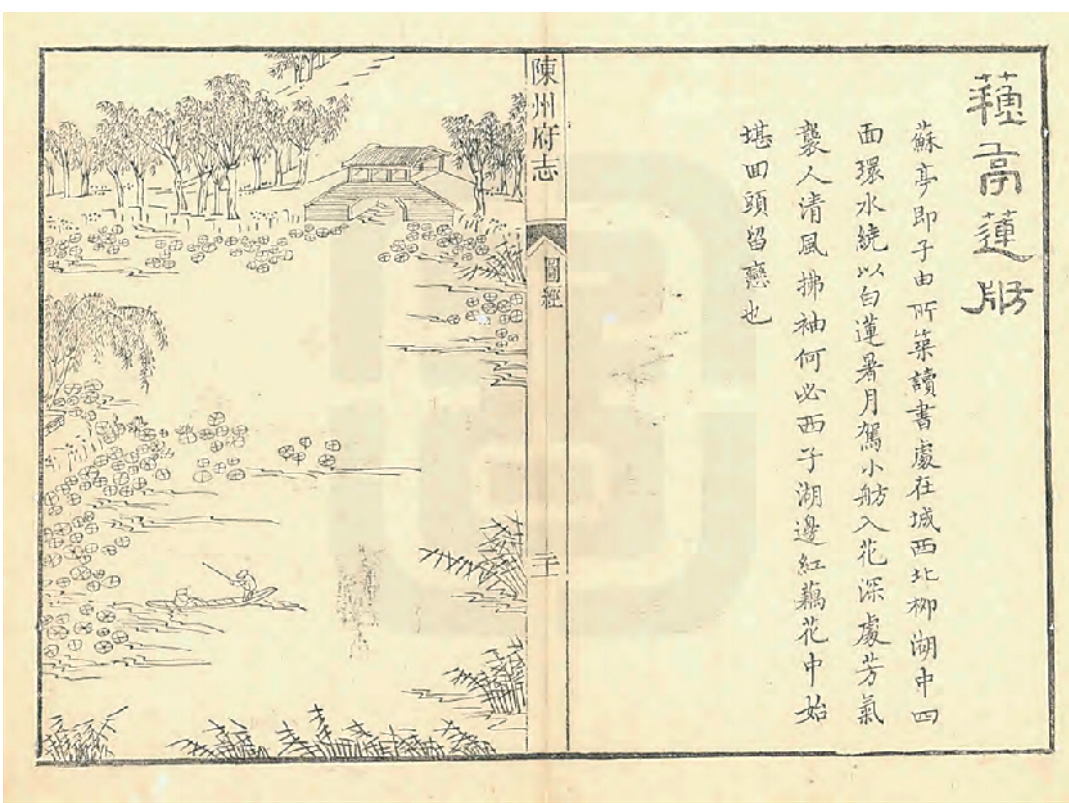 蘇亭蓮舫
蘇亭即子由所築讀書處在城西北柳湖中四
面環水繞以白蓮暑月駕小舫入花深處芳氣
襲人清風拂袖何必西子湖邊紅藕花中始
堪回頭留戀也
陳州府志
圖經